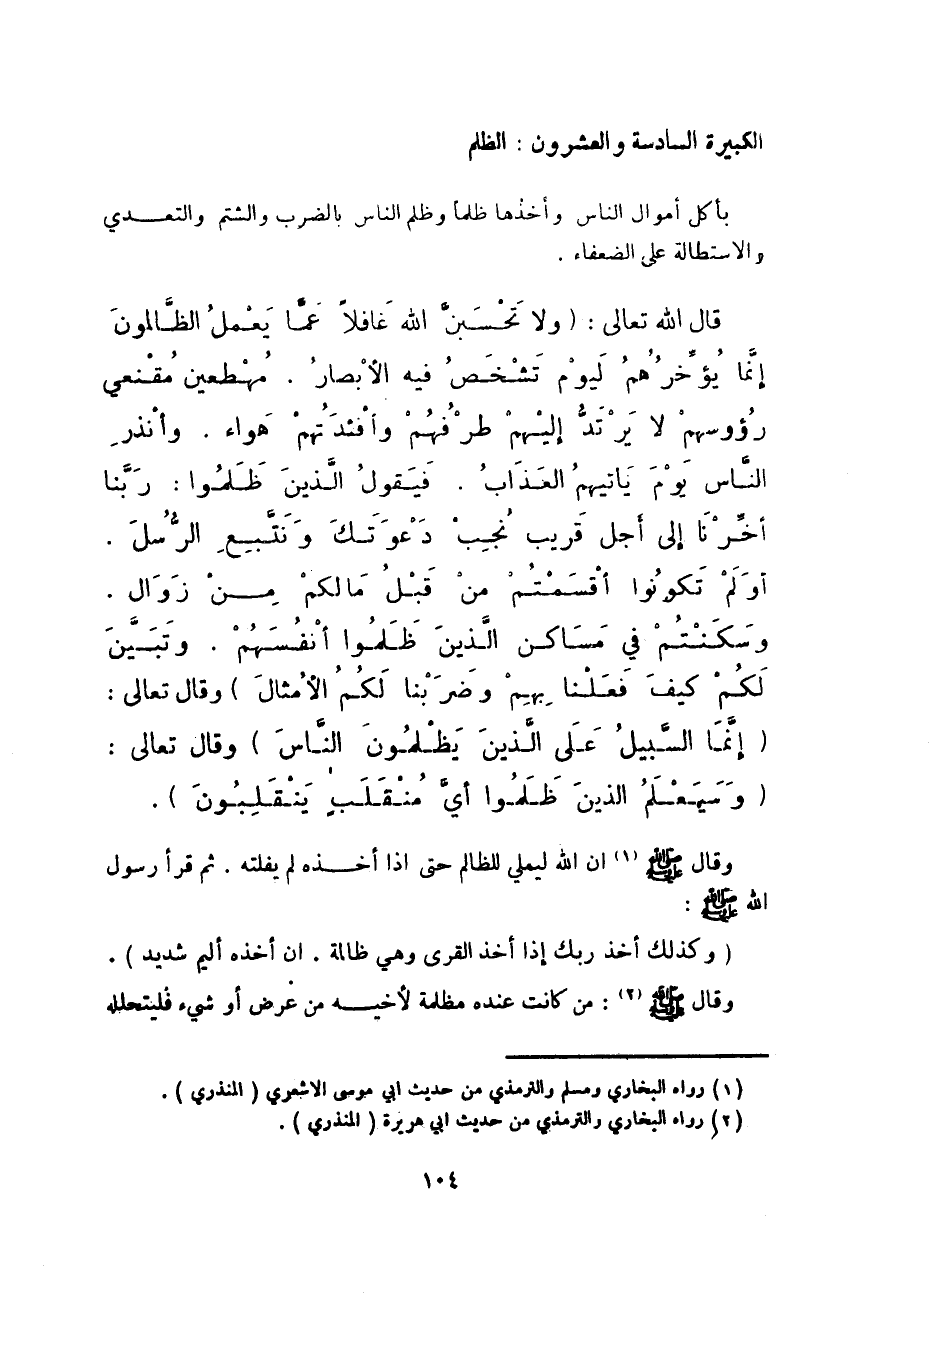 الكبيرة السادسة والعشرون : الظلم
بأكل أموال الناس وأخذها ظلماً وظلم الناس بالضرب والشتم والتعدي
والاستطالة على الضعفاء .
قال الله تعالى : ( ولا تَحْسَبنَّ الله غَافلاً عَمَّا يَعْملُ الظَّالمونَ
إنَّما يُؤخِّرُهُمُ لَيومْ تَشْخَصُ فيه الأبْصارُ . مُهْطعين مُقْنعي
رُؤوسهمْ لا يَرْتَدُّ إليْهمْ طرْفُهُمْ وأفْئدَتُهمْ هَواء . وأنْذرِ
النَّاس يَوْمَ يَاتيهمُ العَذَابُ . فَيَقولُ الَّذينَ ظَلَمُوا : رَبَّنا
أخِّرْنَا إلى أَجل قَريب نُجبْ دَعْوَتَكَ وَنَتَّبعِ الرُّسلَ .
أوَلَمْ تَكونُوا أقْسَمْتُمْ منْ قَبْلُ مَالكمْ مِنْ زَوَال .
وسَكَنْتُمْ في مَسَاكن الَّذينَ ظَلَمُوا أنْفُسَهُمْ . وتَبَيَّنَ
لَكُمْ كيفَ فَعَلْنا بِهِمْ وضَرَبْنا لَكُمُ الأمْثالَ ) وقال تعالى :
( إنَّمَا السَّبيلُ عَلَى الَّذينَ يَظْلمُونَ النَّاسَ ) وقال تعالى :
( وسَيَعْلَمُ الذينَ ظَلَمُوا أيَّ مُنْقَلَبٍ يَنْقَلِبُونَ ) .
وقال ﷺ (١) ان الله ليملي للظالم حتى اذا أخذه لم يفلته . ثم قرأ رسول
الله ﷺ :
( وكذلك أخذ ربك إذا أخذ القرى وهي ظالمة . ان أخذه أليم شديد ) .
وقال ﷺ (٢) : من كانت عنده مظلمة لأخيه من عرض أو شيء فليتحلله
(١) رواه البخاري ومسلم والترمذي من حديث ابي موسى الاشعري ( المنذري ) .
(٢) رواه البخاري والترمذي من حديث ابي هريرة ( المنذري ) .
١٠٤